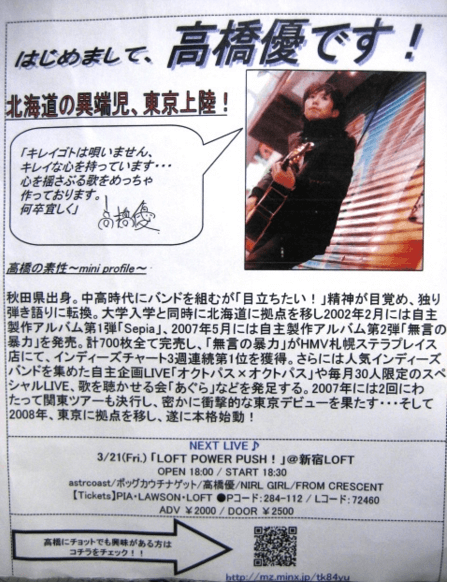 はじめまして、高橋優です！
北海道の異端児、東京上陸！
「キレイゴトは唄いません、
キレイな心を持っています・・・
心を揺さぶる歌をめっちゃ
作っております。
何卒宜しく」
高橋優
高橋の素性～mini profile～
秋田県出身。中高時代にバンドを組むが「目立ちたい！」精神が目覚め、独り
弾き語りに転換。大学入学と同時に北海道に拠点を移し2002年2月には自主
製作アルバム第1弾「Sepia」、2007年5月には自主製作アルバム第2弾「無言の
暴力」を発売。計700枚全て完売し、「無言の暴力」がHMV札幌ステラプレイス
店にて、インディーズチャート3週連続第1位を獲得。さらには人気インディーズ
バンドを集めた自主企画LIVE「オクトパス×オクトパス」や毎月30人限定のスペシ
ャルLIVE、歌を聴かせる会「あぐら」などを発足する。2007年には2回にわ
たって関東ツアーも決行し、密かに衝撃的な東京デビューを果たす・・・そして
2008年、東京に拠点を移し、遂に本格始動！
NEXT LIVE♪
3/21(Fri.) 「LOFT POWER PUSH！」@新宿LOFT
OPEN 18:00 / START 18:30
astrcoast/ポッグカウチナゲット/高橋優/NIRL GIRL/FROM CRESCENT
【Tickets】PIA・LAWSON・LOFT ●Pコード:284-112 / Lコード:72460
ADV ￥2000 / DOOR ￥2500
高橋にチョットでも興味がある方は
コチラをチェック！！
http://mz.minx.jp/tk84yu